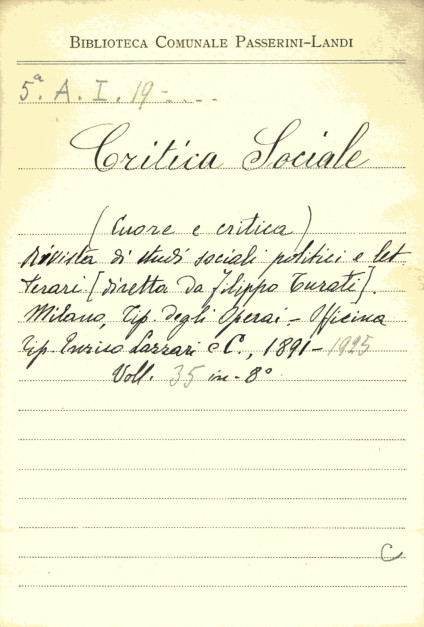 BIBLIOTECA COMUNALE PASSERINI-LANDI
5ª. A. I. 19-...
Critica Sociale
(Cuore e critica)
Rivista di studi sociali politici e let
terari [diretta da Filippo Turati].
Milano, Tip. degli Operai - Officina
Tip. Enrico Lazzari e C., 1891-1925
Voll. 35 in-8°
C